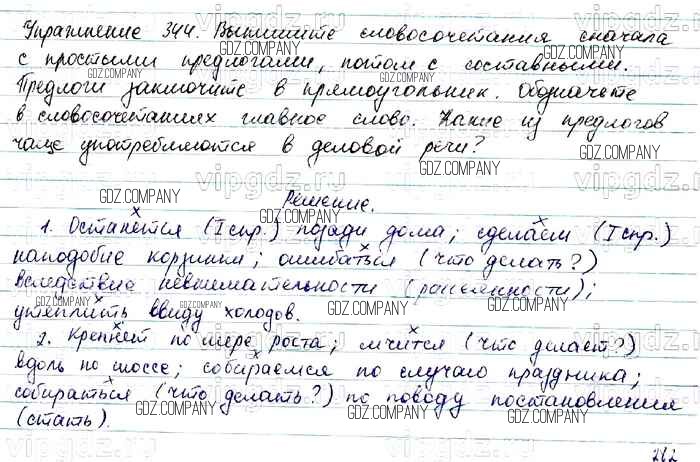 Упражнение 344. Выпишите словосочетания сначала
с простыми предлогами, потом с составными.
Предлоги заключите в прямоугольник. Обозначьте
в словосочетаниях главное слово. Какие из предлогов
чаще употребляются в деловой речи?
Решение.
1. Останется (I спр.) позади дома; сделаем (I спр.)
наподобие корзинки; ошибаться (что делать?)
вследствие невнимательности (рассеянности);
утеплить ввиду холодов.
2. Крепнет по мере роста; мчится (что делает?)
вдоль по шоссе; собираемся по случаю праздника;
собираться (что делать?) по поводу постановления
(стать).
282